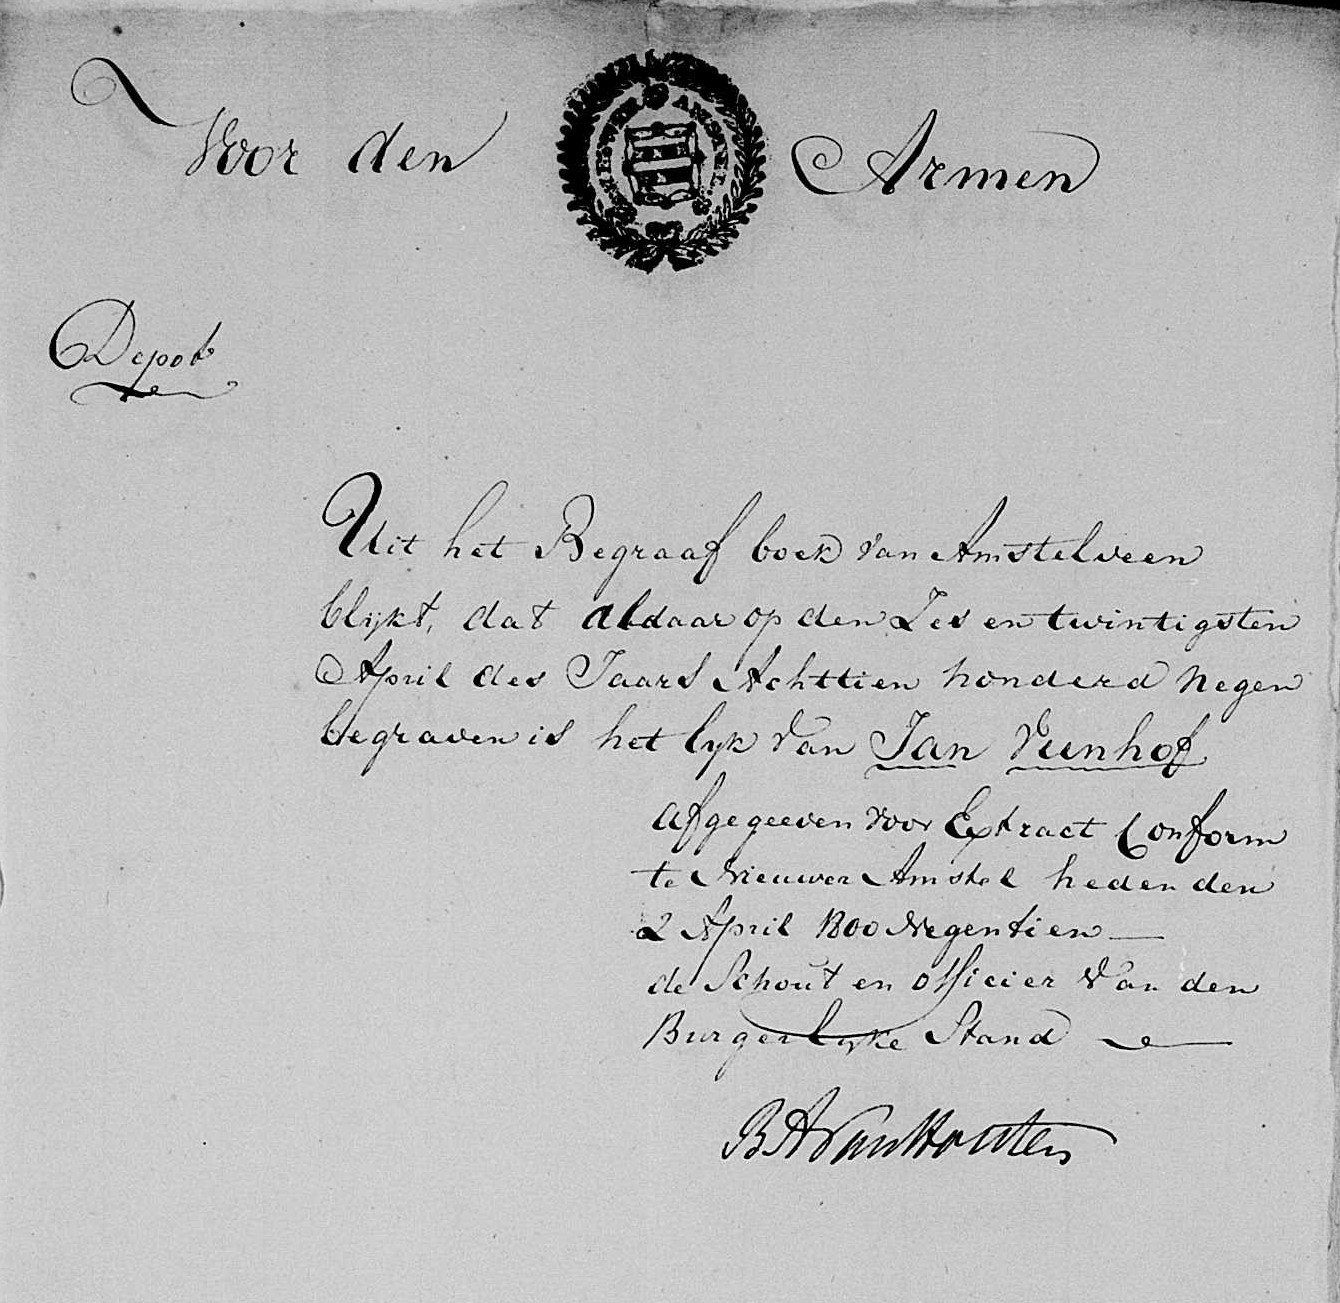 Voor den Armen
NIEUWER AMSTEL
Depot
Uit het Begraaf boek van Amstelveen
blijkt, dat aldaar op den Zes en twintigsten
April des Jaars Achttien honderd Negen
begraven is het lyk van Jan Veenhof
afgegeeven voor Extract Conform
te Nieuwer Amstel heden den
2 April 1800 Negentien
de Schout en officier van den
Burgerlyke Stand
B A van Houten